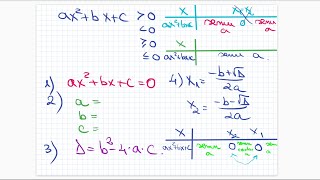 ax²+bx+c > 0
< 0
≥ 0
≤ 0
x x₁x₂
ax²+bx+c semn a 0 semn a
x
ax²+bx+c semn a.
1) ax²+bx+c=0
2) a =
b =
c =
3) Δ = b²-4·a·c.
4) x₁ = -b+√Δ / 2a
x₂ = -b-√Δ / 2a
x x₂ x₁
ax²+bx+c semn a 0 0 semn a